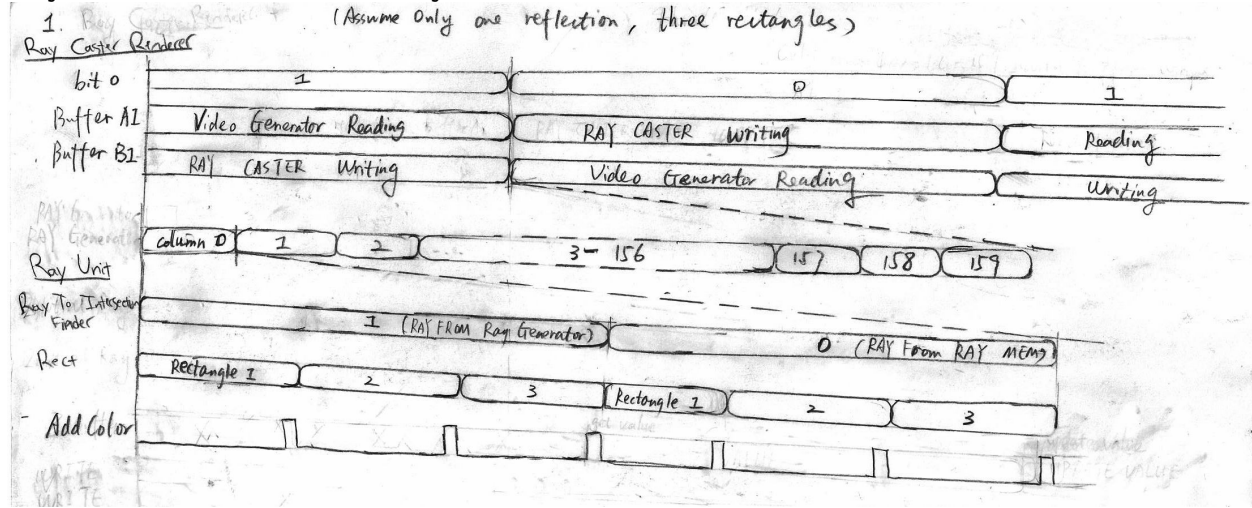 1. (Assume Only one reflection, three rectangles)
Ray Caster Renderer
bit 0 1 0 1
Buffer A1 Video Generator Reading RAY CASTER Writing Reading
Buffer B1 RAY CASTER Writing Video Generator Reading Writing
Column 0 1 2 3-156 157 158 159
Ray Unit
Ray To Intersection Finder 1 (RAY FROM Ray Generator) 0 (RAY From RAY MEM)
Rect Rectangle 1 2 3 Rectangle 1 2 3
Add Color